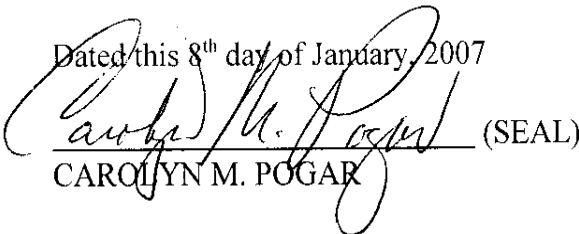 Dated this 8th day of January, 2007
Carolyn M. Pogar (SEAL)
CAROLYN M. POGAR